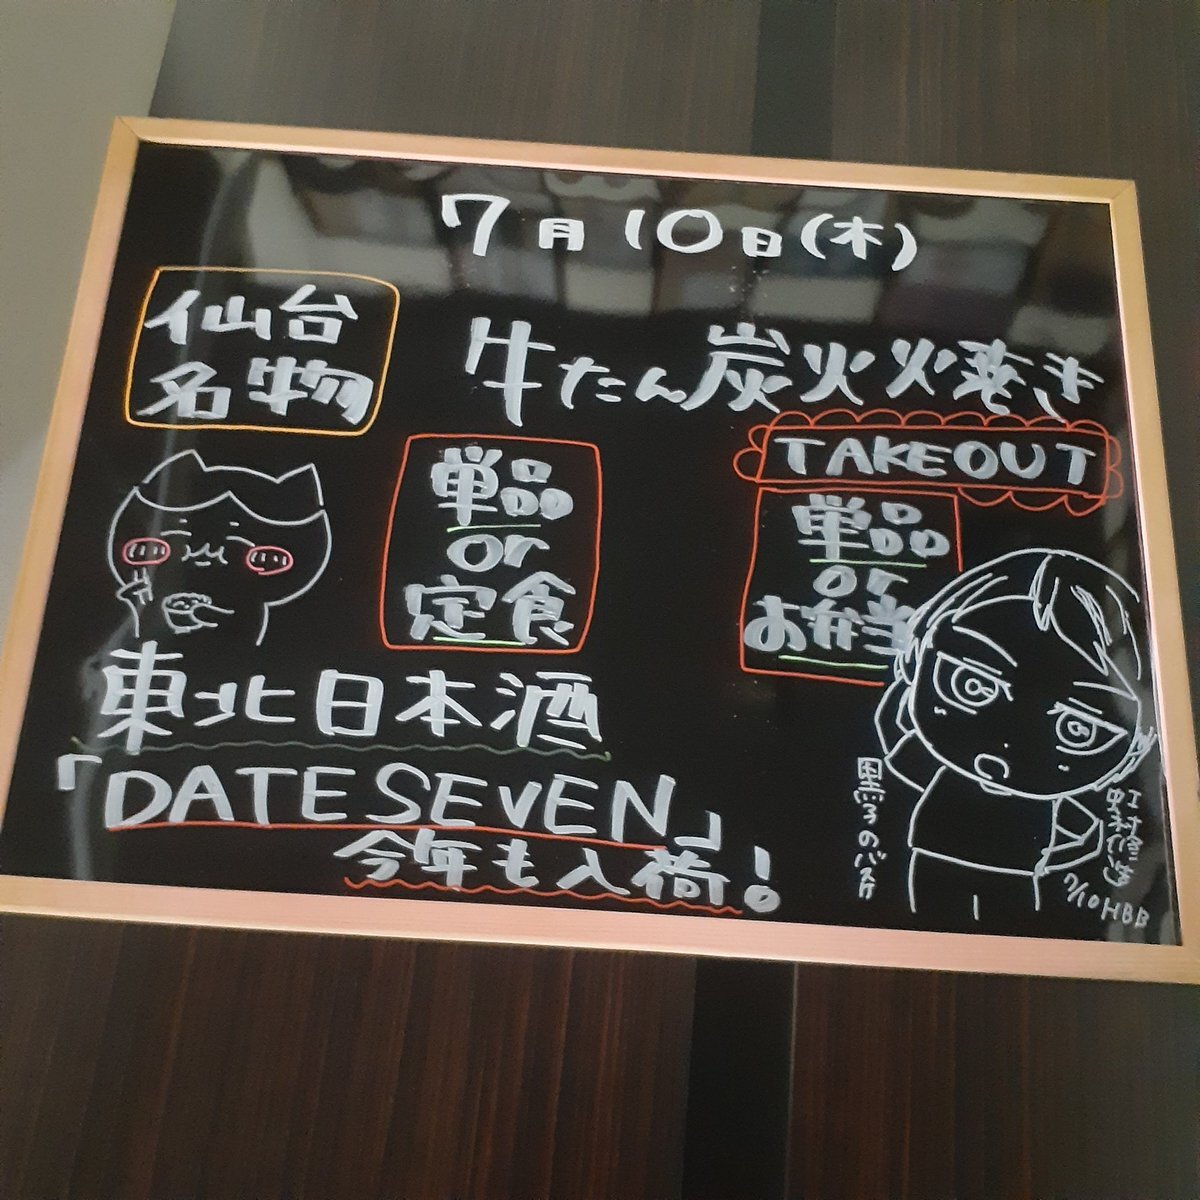 7月10日(木)
仙台
名物
牛たん炭火焼き
単品
or
定食
TAKEOUT
単品
or
お弁当
東北日本酒
「DATE SEVEN」
今年も入荷!
黒子のバスケ
虹村修造
7/10 HBB